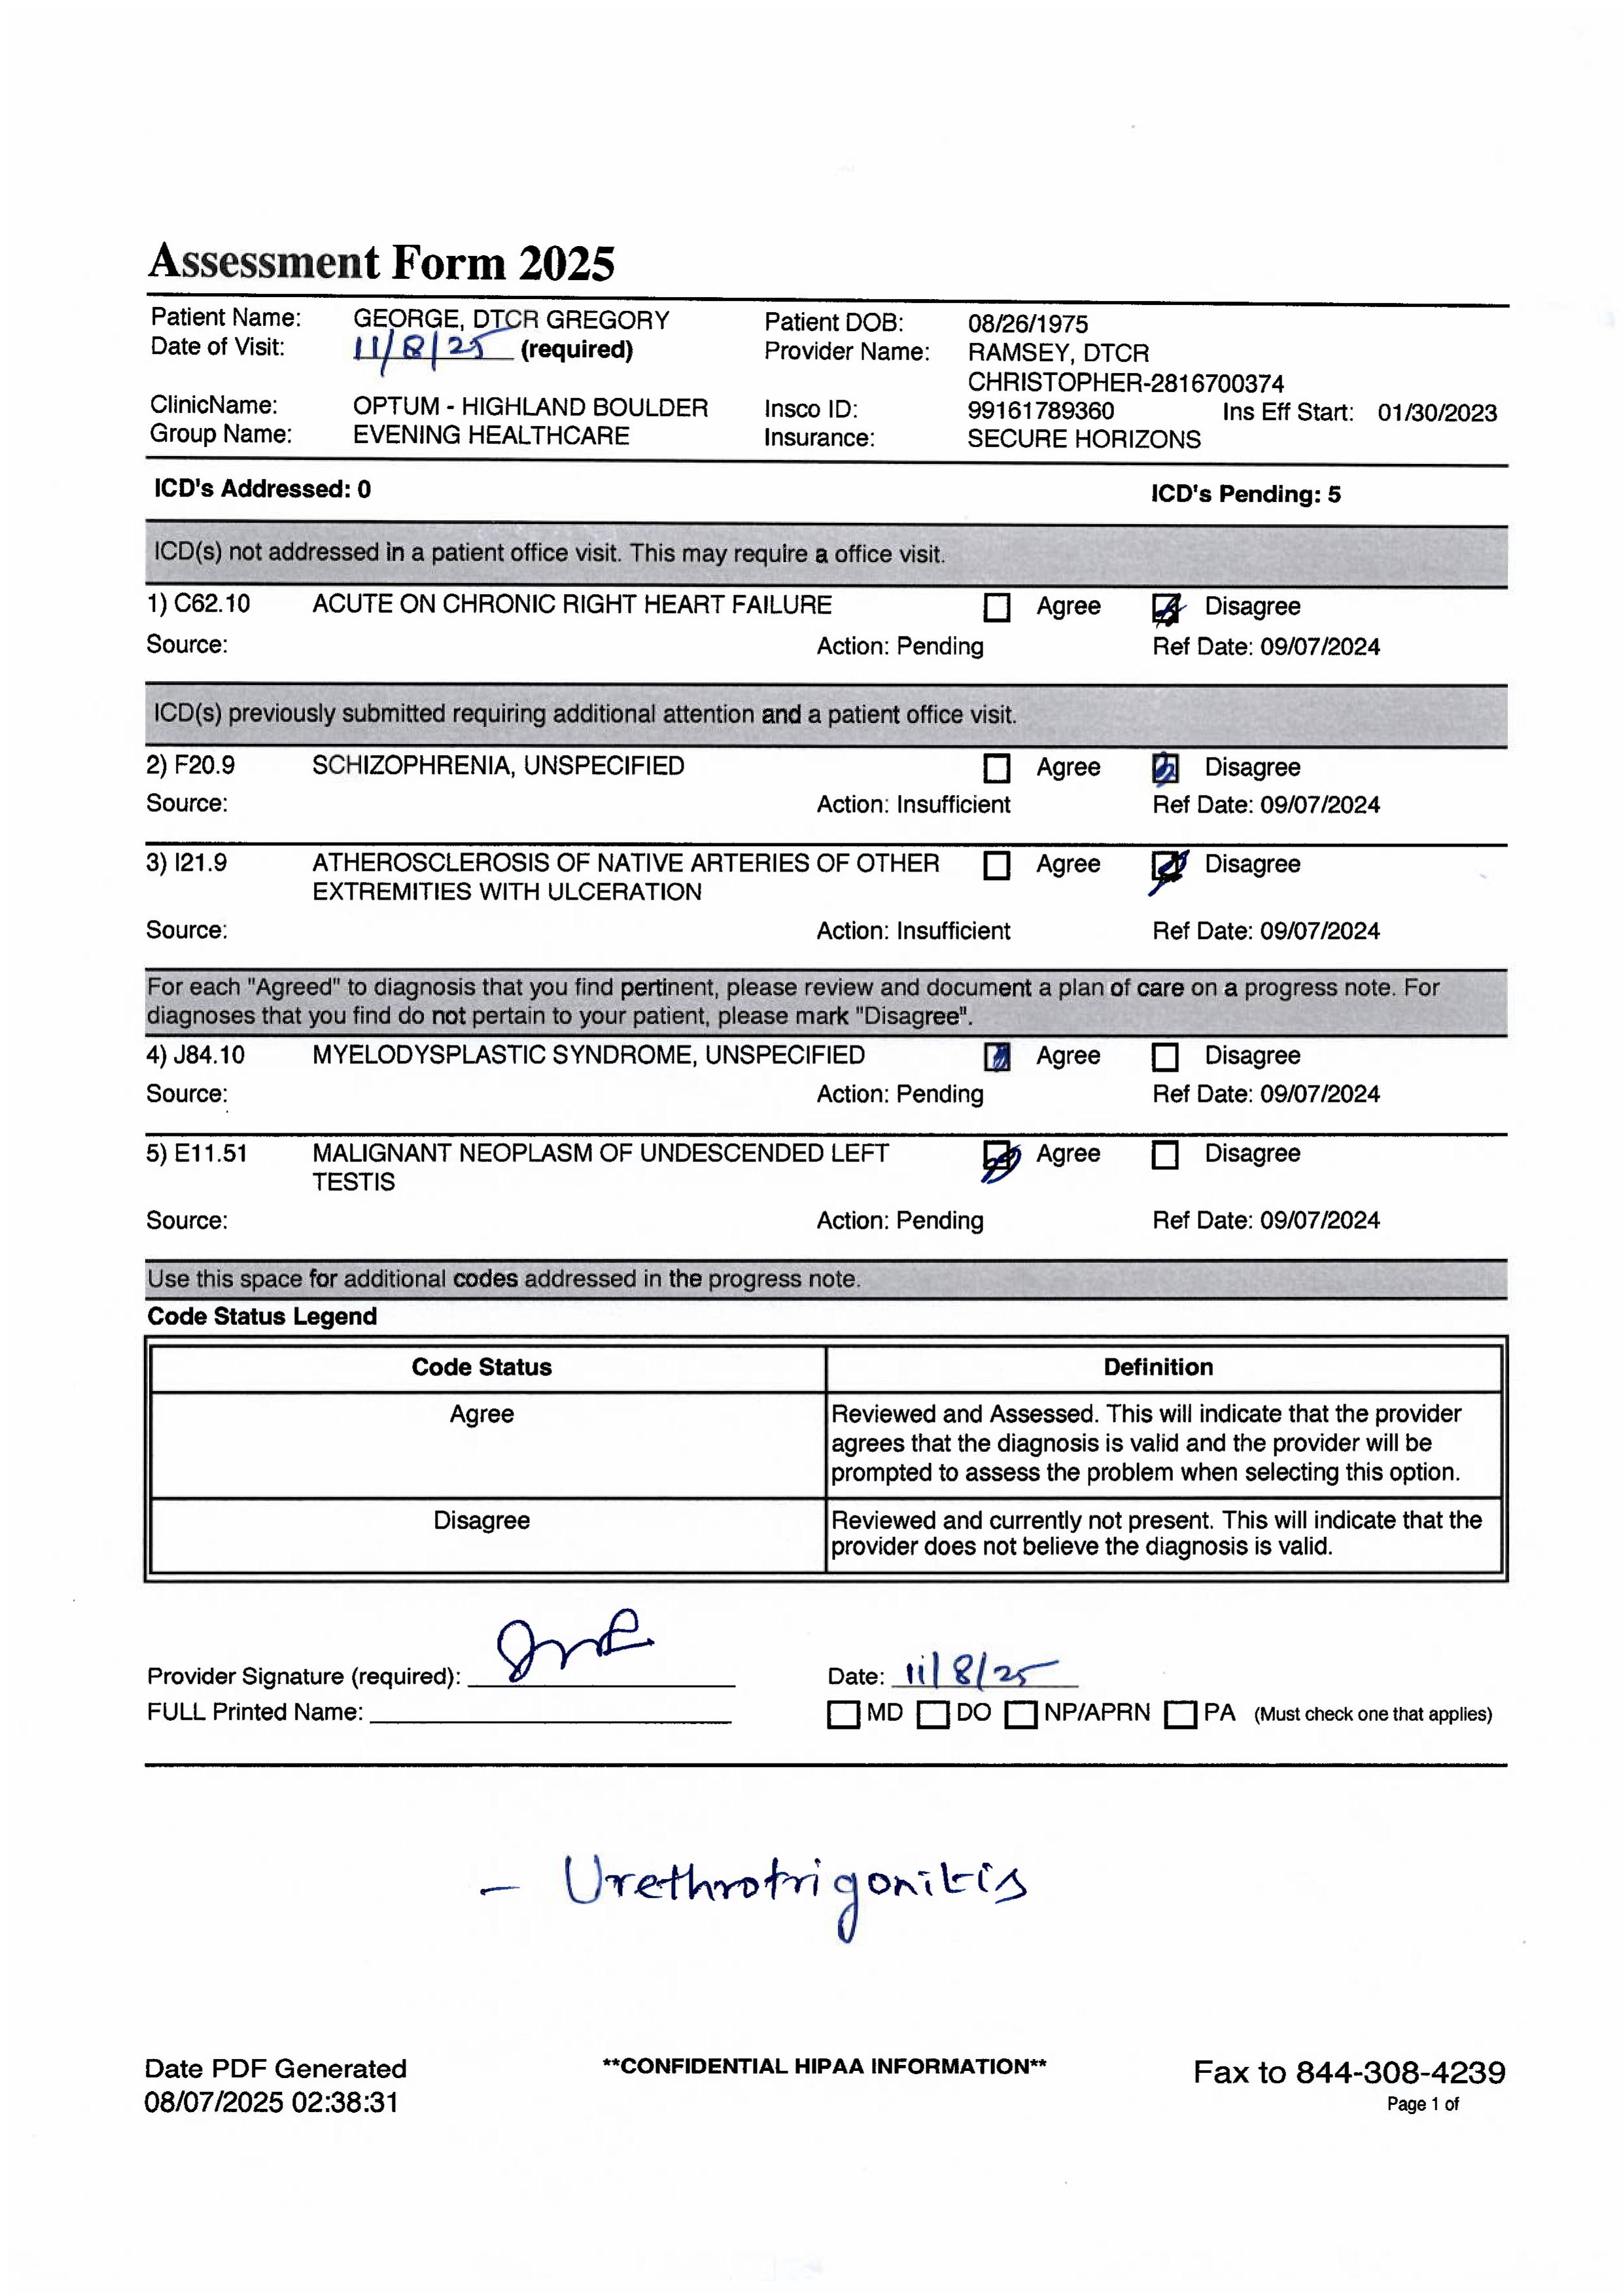 Assessment Form 2025
Patient Name: GEORGE, DTCR GREGORY Patient DOB: 08/26/1975
Date of Visit: 11/8/25 (required) Provider Name: RAMSEY, DTCR
CHRISTOPHER-2816700374
ClinicName: OPTUM - HIGHLAND BOULDER Insco ID: 99161789360 Ins Eff Start: 01/30/2023
Group Name: EVENING HEALTHCARE Insurance: SECURE HORIZONS
ICD's Addressed: 0 ICD's Pending: 5
ICD(s) not addressed in a patient office visit. This may require a office visit.
1) C62.10 ACUTE ON CHRONIC RIGHT HEART FAILURE Agree Disagree
Source: Action: Pending Ref Date: 09/07/2024
ICD(s) previously submitted requiring additional attention and a patient office visit.
2) F20.9 SCHIZOPHRENIA, UNSPECIFIED Agree Disagree
Source: Action: Insufficient Ref Date: 09/07/2024
3) I21.9 ATHEROSCLEROSIS OF NATIVE ARTERIES OF OTHER Agree Disagree
EXTREMITIES WITH ULCERATION
Source: Action: Insufficient Ref Date: 09/07/2024
For each "Agreed" to diagnosis that you find pertinent, please review and document a plan of care on a progress note. For
diagnoses that you find do not pertain to your patient, please mark "Disagree".
4) J84.10 MYELODYSPLASTIC SYNDROME, UNSPECIFIED Agree Disagree
Source: Action: Pending Ref Date: 09/07/2024
5) E11.51 MALIGNANT NEOPLASM OF UNDESCENDED LEFT Agree Disagree
TESTIS
Source: Action: Pending Ref Date: 09/07/2024
Use this space for additional codes addressed in the progress note.
Code Status Legend
Code Status Definition
Agree Reviewed and Assessed. This will indicate that the provider
agrees that the diagnosis is valid and the provider will be
prompted to assess the problem when selecting this option.
Disagree Reviewed and currently not present. This will indicate that the
provider does not believe the diagnosis is valid.
Provider Signature (required): Date: 11/8/25
FULL Printed Name: MD DO NP/APRN PA (Must check one that applies)
- Urethrotrigonitis
Date PDF Generated **CONFIDENTIAL HIPAA INFORMATION** Fax to 844-308-4239
08/07/2025 02:38:31 Page 1 of